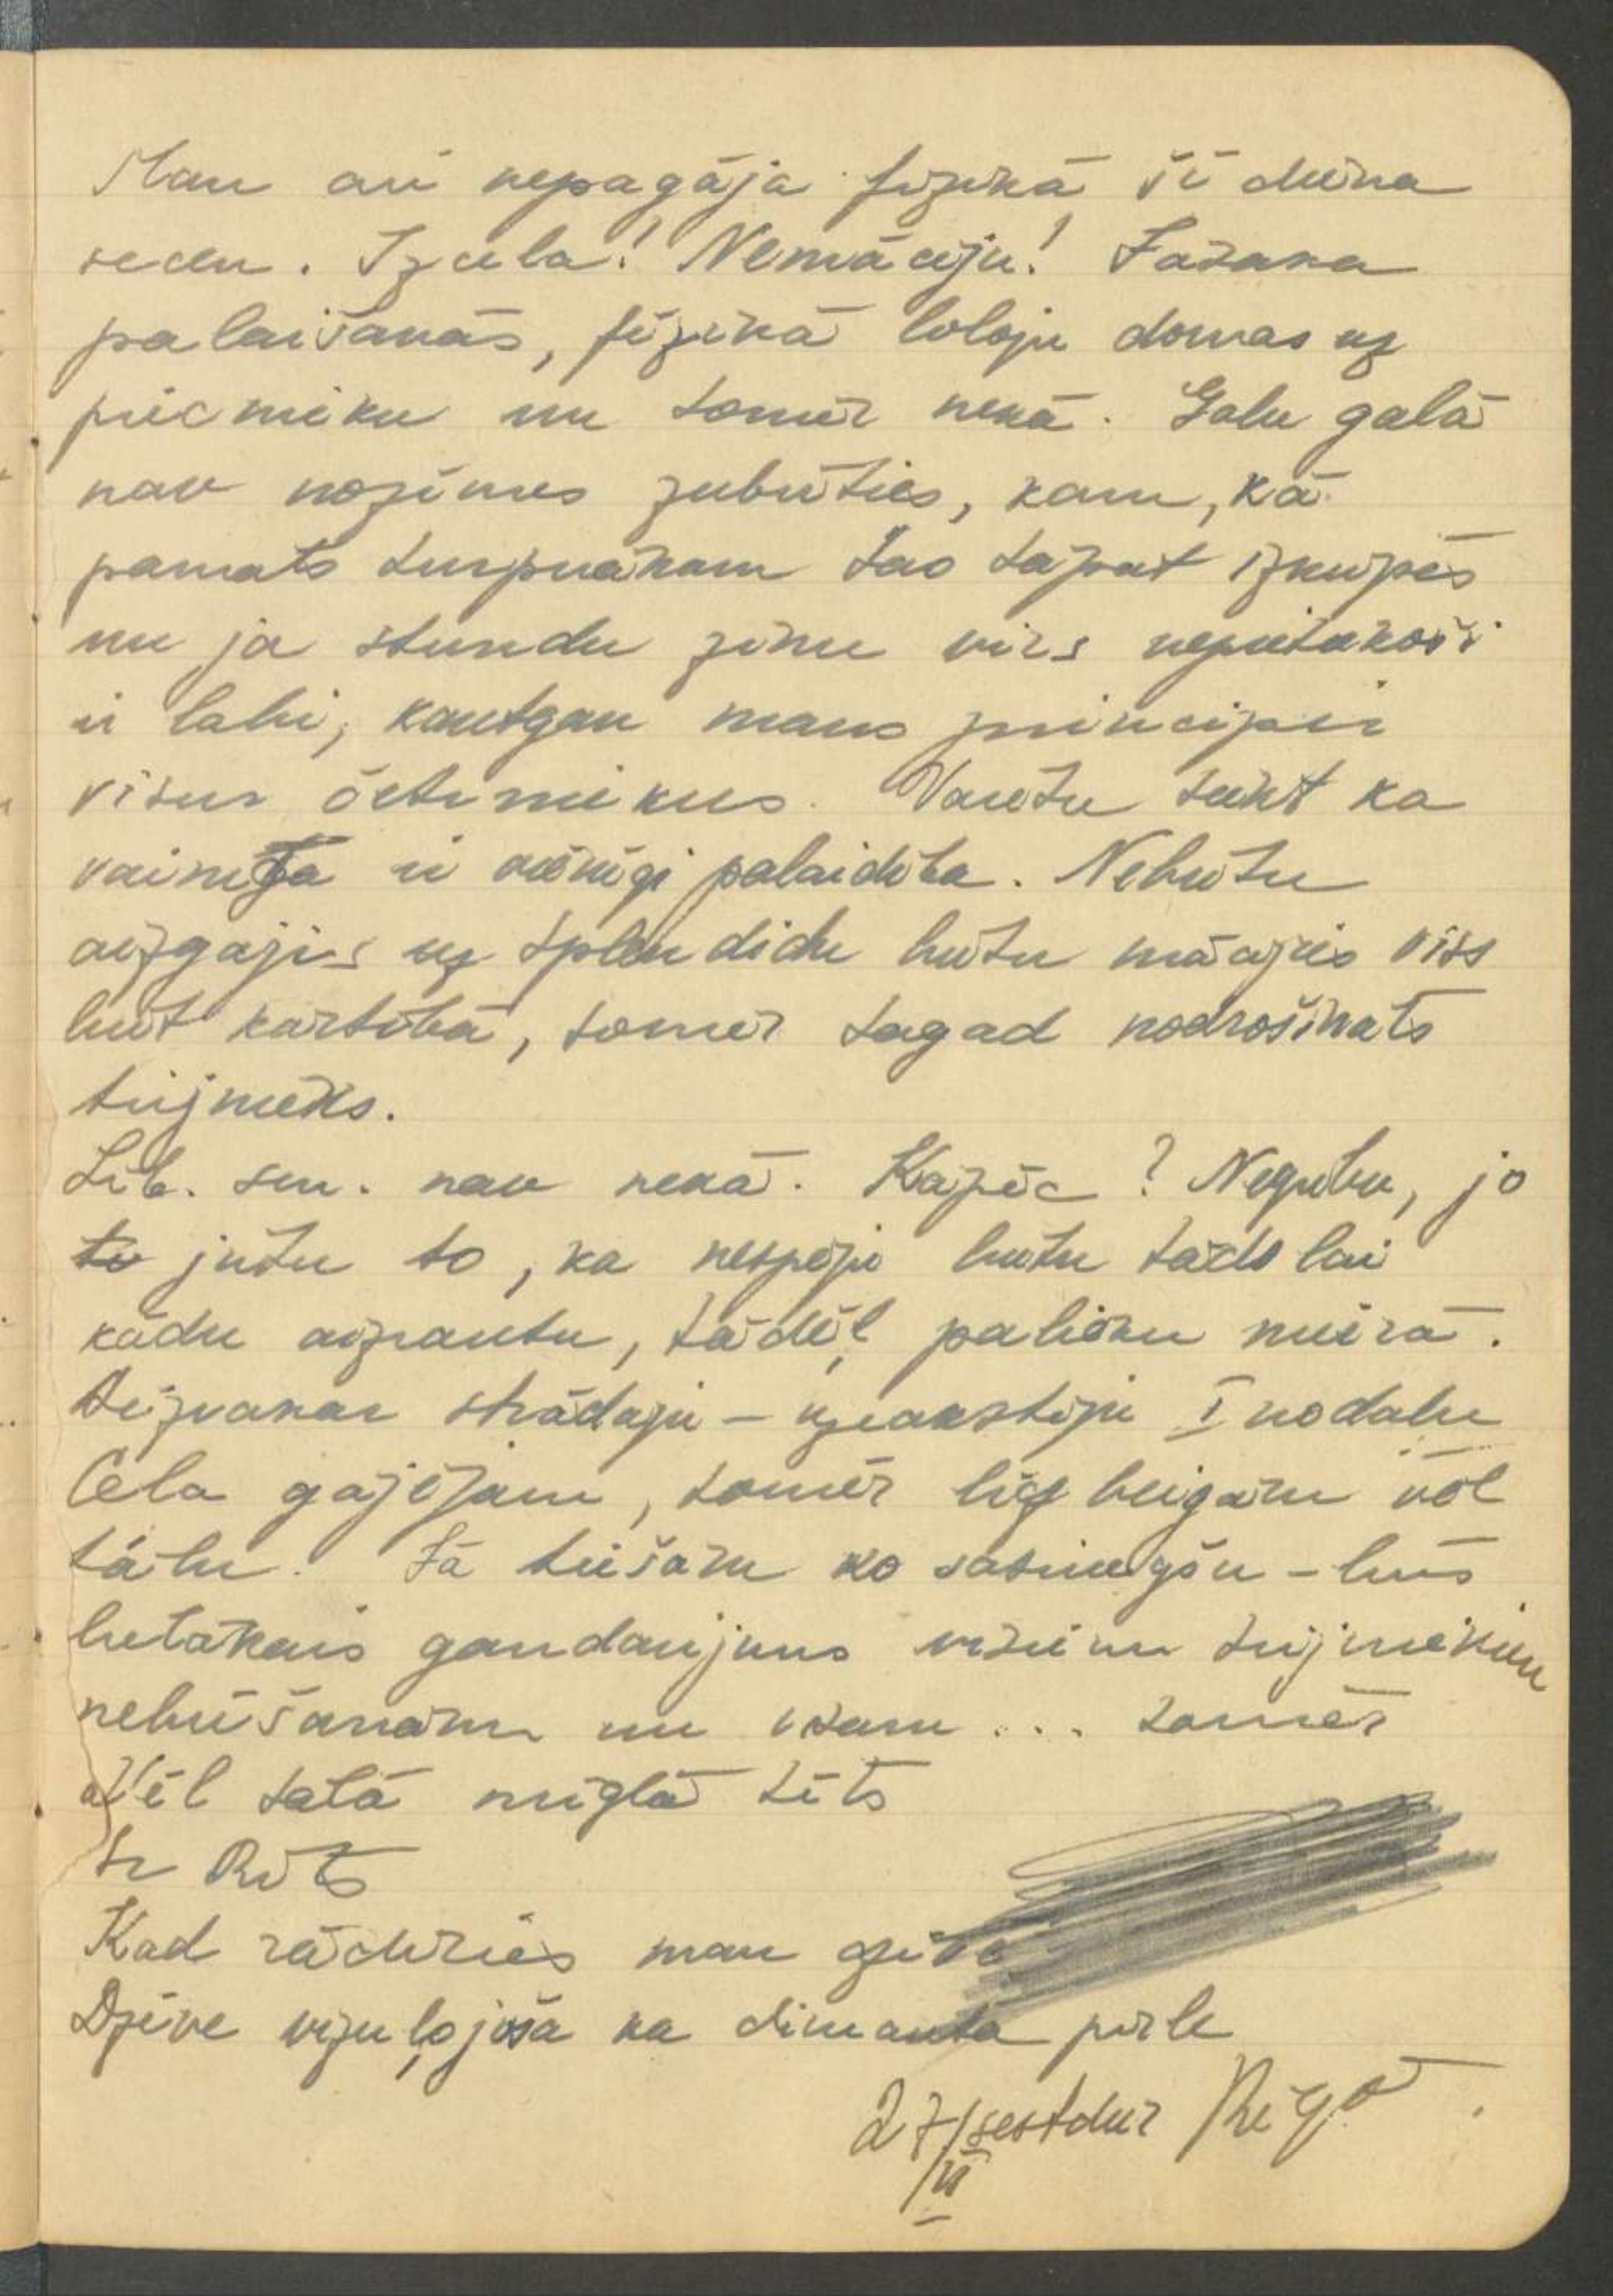 Man arī nepagāja fizikā šī diena
secen. Izcela! Nemācēju! Vakara
palaišanās, fizikā loloju domas uz
piecnieku un tomēr nekā. Galu galā
nav nozīmes zubīties, kam, kā
pamats turpmākam tas tāpat izkūpēs
un ja stundu zinu virs nepietiekoši
ir labi, kautgan mans princips ir
visur četriniekus. Varētu teikt ka
vainīga ir vienīgi palaidība. Nebūtu
aizgājis uz Splendidu būtu mācijies viss
būt kārtībā, tomēr tagad nodrošināts
trijnieks.
Lit. sem. nav nekā. Kāpēc? Negribu, jo
to jūtu to, ka nespēju būtu tāds lai
kādu aizrautu, tādēļ palieku mierā.
Aizvakar strādāju - uzrakstīju I nodaļu
Ceļa gājējam, tomēr līdz beigām vēl
tālu. Ja tiešām ko sasniegšu - būs
lielākais gandarijums visiem trijniekiem
nebūšanām un visam ... tomēr
vēl tālā miglā tīts
Ir Rīts
Kad rādīries man dzīve
Dzīve vizuļojoša kā dimanta pērle
27/II sestdien Rīgā.